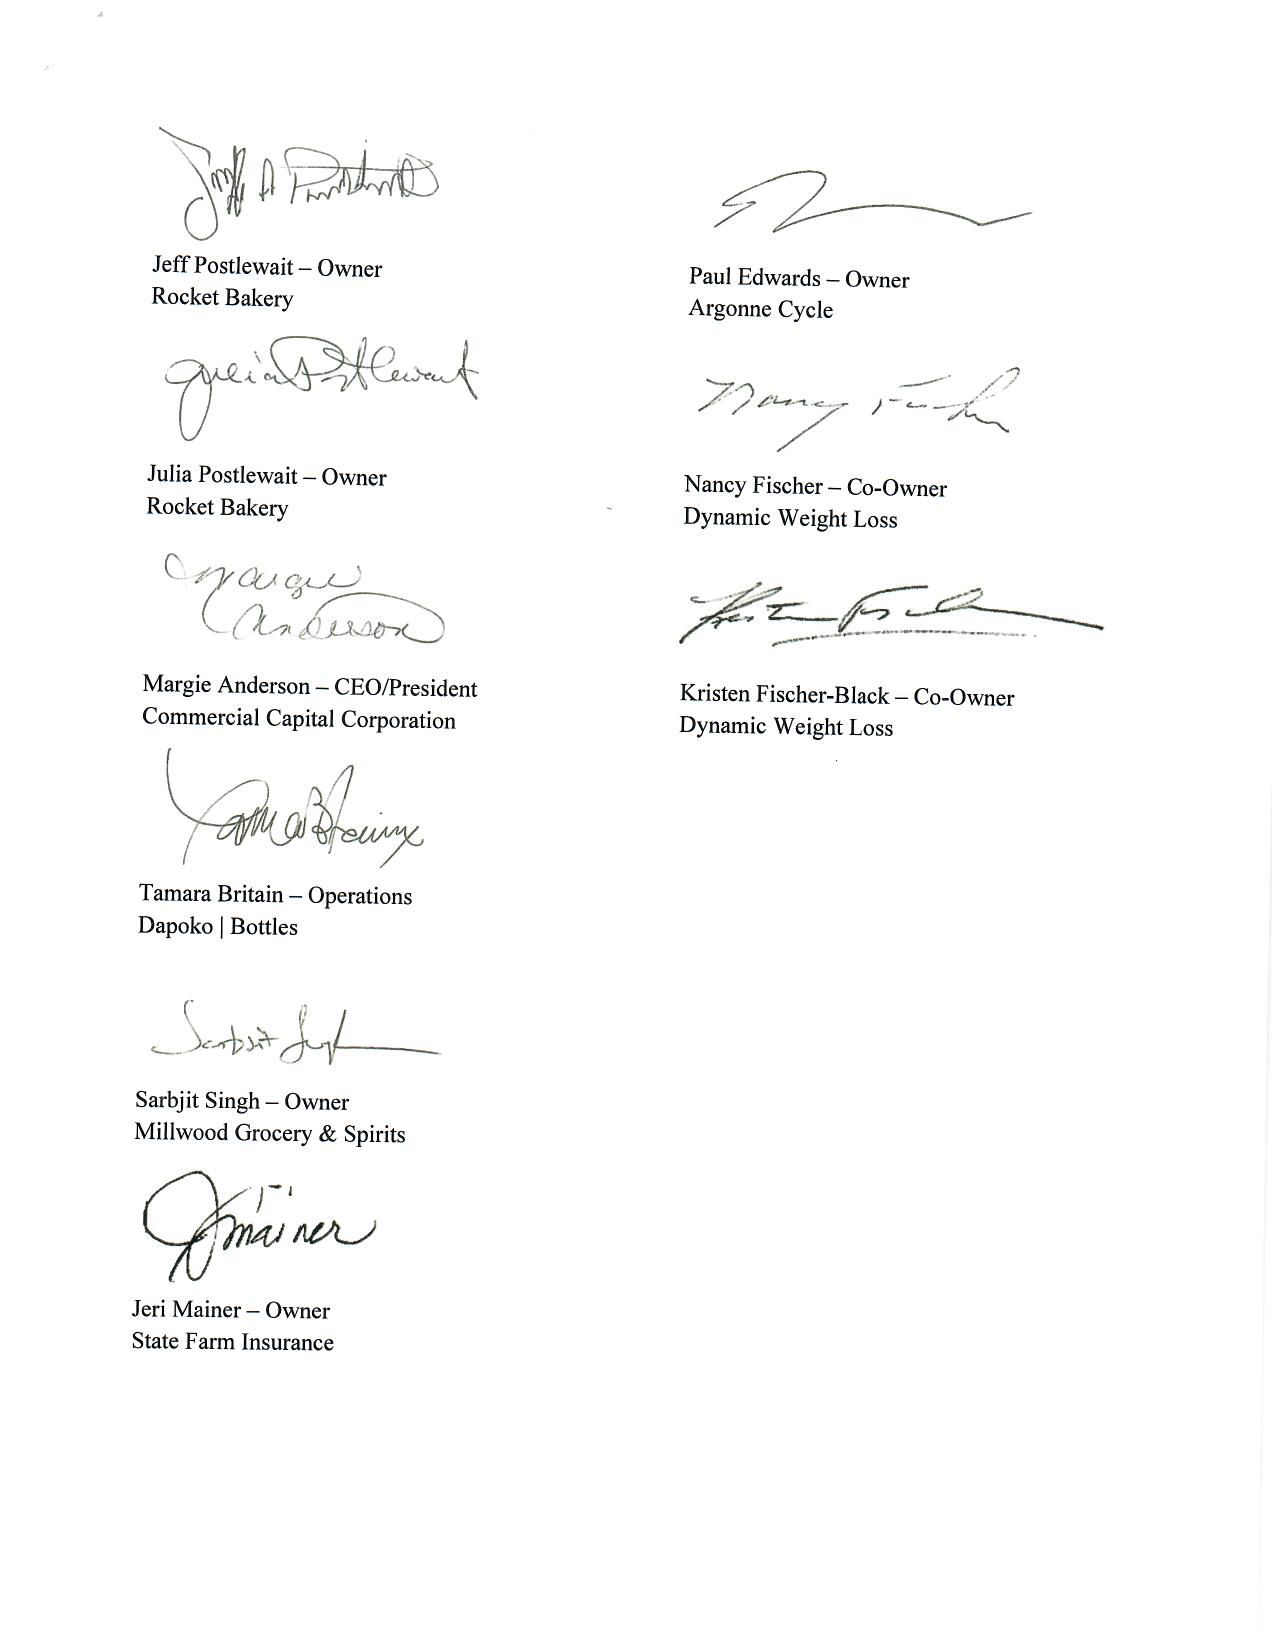 Jeff A Postlewait
Jeff Postlewait – Owner
Rocket Bakery
Julia Postlewait
Julia Postlewait – Owner
Rocket Bakery
Margie
Anderson
Margie Anderson – CEO/President
Commercial Capital Corporation
Tamara Britain – Operations
Dapoko | Bottles
Sarbjit Singh
Sarbjit Singh – Owner
Millwood Grocery & Spirits
Mainer
Jeri Mainer – Owner
State Farm Insurance
Paul Edwards – Owner
Argonne Cycle
Nancy Fischer
Nancy Fischer – Co-Owner
Dynamic Weight Loss
Kristen Fischer-Black – Co-Owner
Dynamic Weight Loss